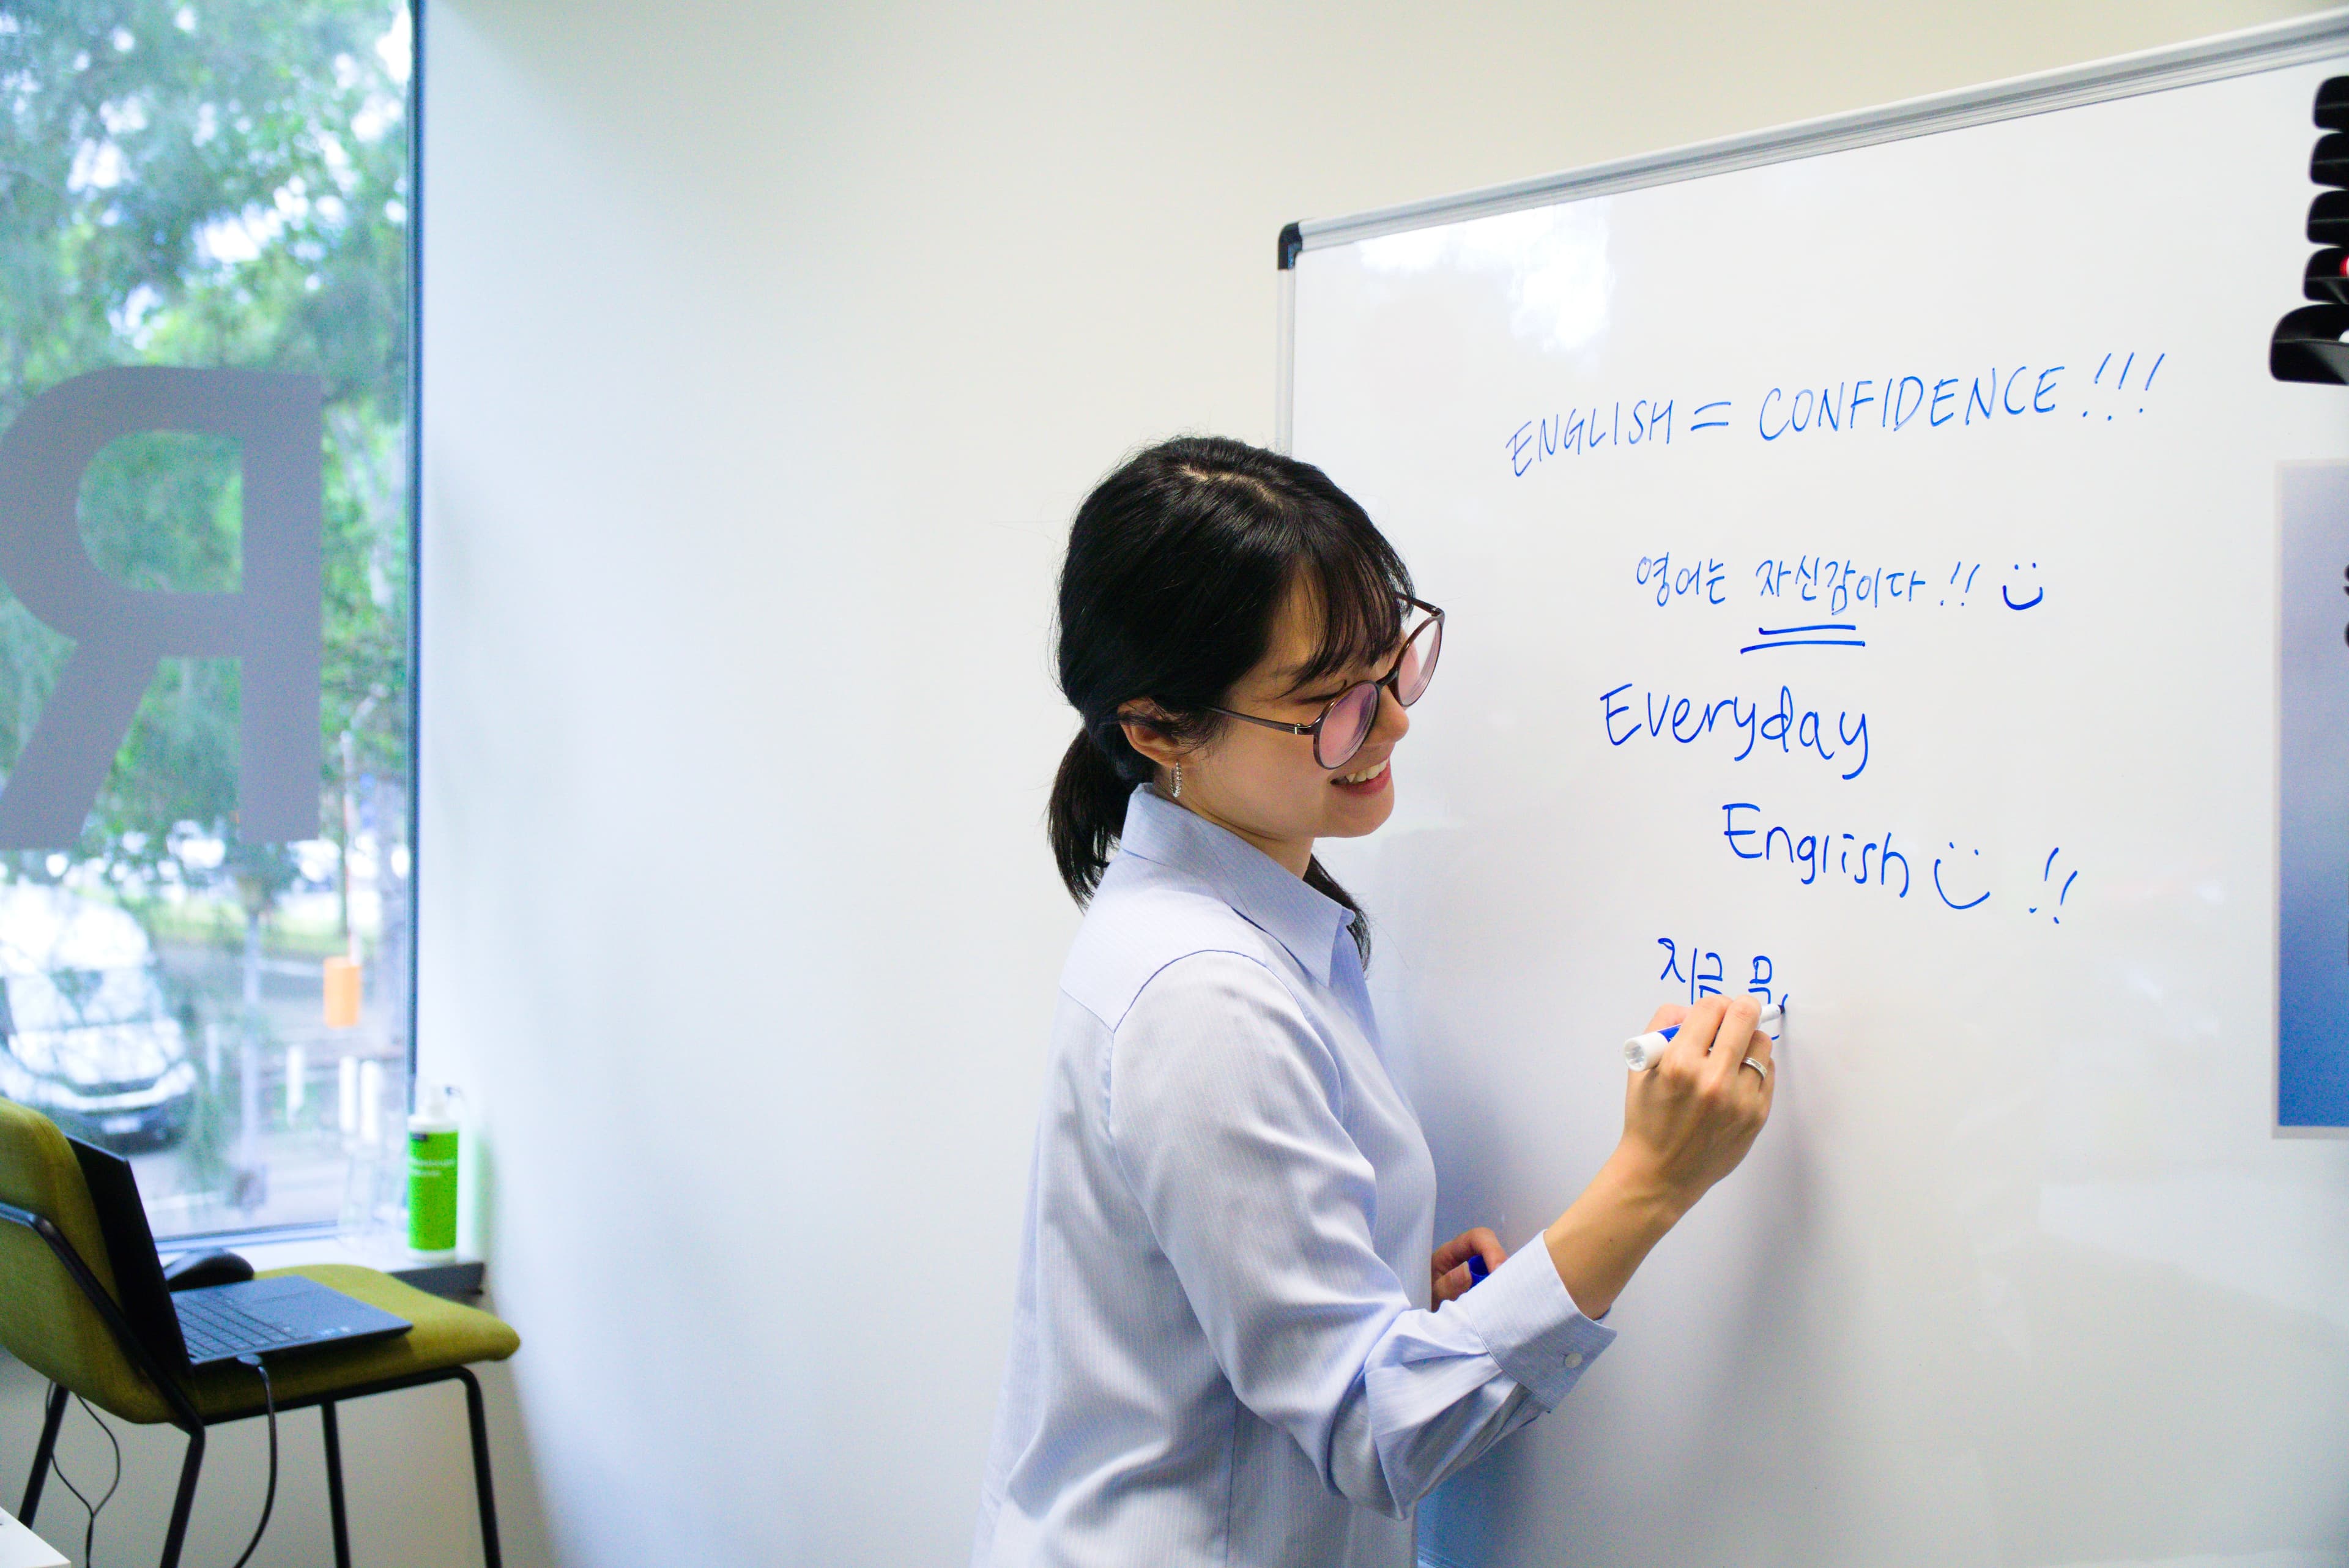 ENGLISH = CONFIDENCE!!!
영어는 자신감이다!!
Everyday
English !!
지금